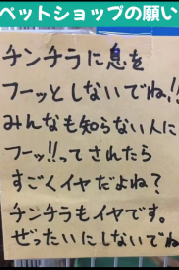 ペットショップの願い
チンチラに息を
フーッとしないでね!!
みんなも知らない人に
フーッ!!ってされたら
すごくイヤだよね?
チンチラもイヤです。
ぜったいにしないでね